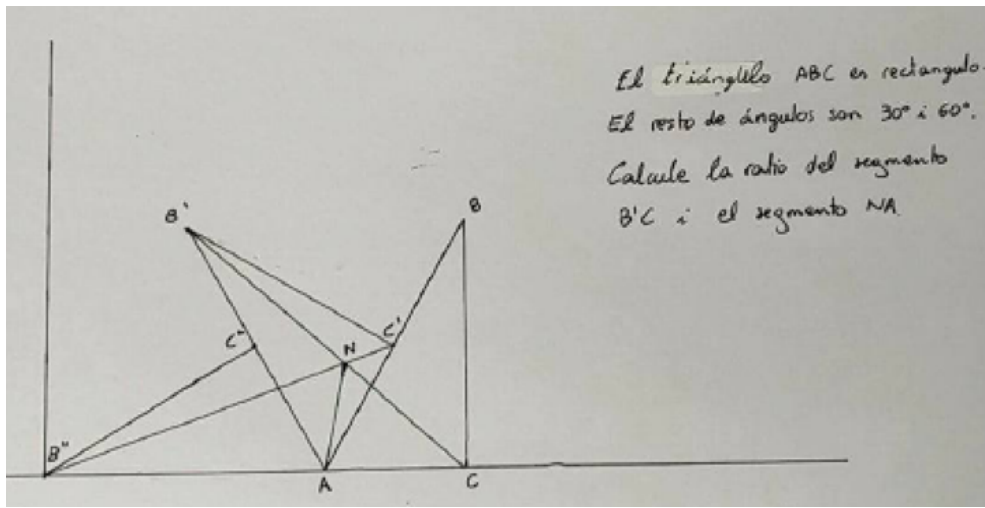 El triángulo ABC es rectangulo.
El resto de ángulos son 30° i 60°.
Calcule la ratio del segmento
B'C i el segmento NA.
B'
B
C"
N
C'
B"
A
C